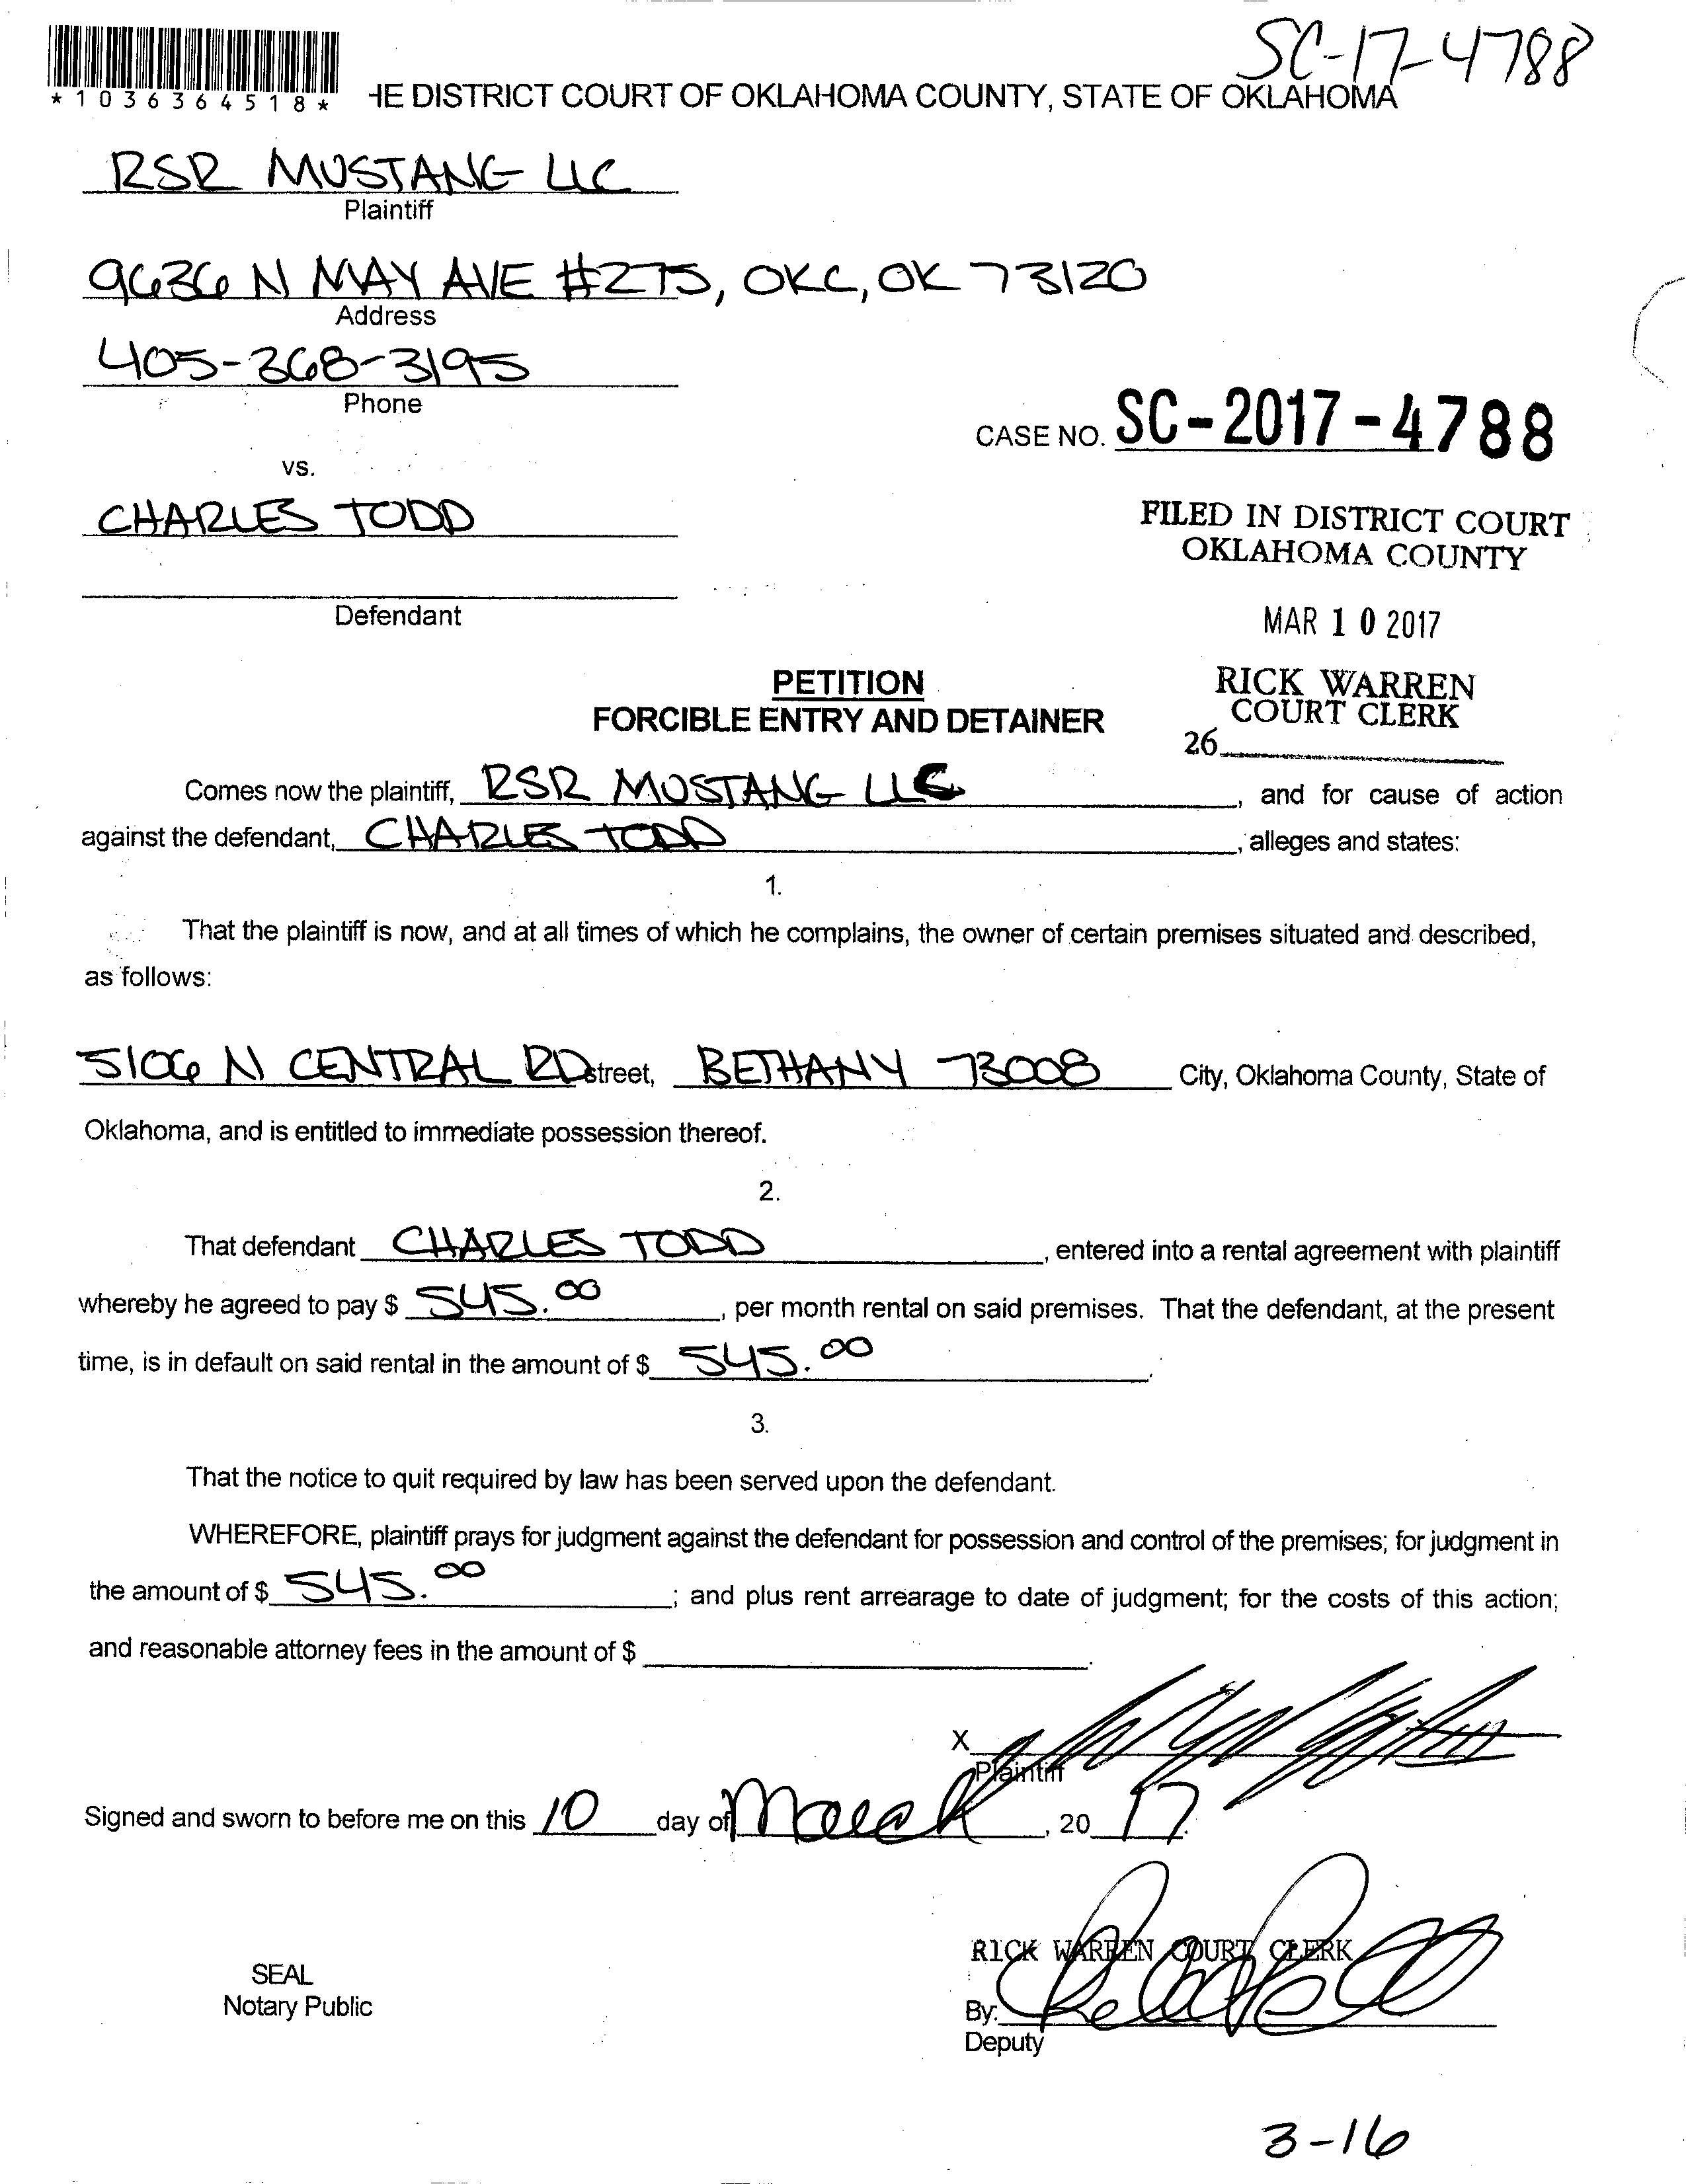 SC-17-4788
*1036364518*
HE DISTRICT COURT OF OKLAHOMA COUNTY, STATE OF OKLAHOMA
RSR MUSTANG LLC
Plaintiff
9636 N MAY AVE #275, OKC, OK 73120
Address
405-368-3195
Phone
CASE NO. SC-2017-4788
vs.
CHARLES TODD
FILED IN DISTRICT COURT
OKLAHOMA COUNTY
Defendant
MAR 10 2017
PETITION
FORCIBLE ENTRY AND DETAINER
RICK WARREN
COURT CLERK
26
Comes now the plaintiff, RSR MUSTANG LLC, and for cause of action
against the defendant, CHARLES TODD, alleges and states:
1.
That the plaintiff is now, and at all times of which he complains, the owner of certain premises situated and described,
as follows:
5106 N CENTRAL RD street, BETHANY 73008 City, Oklahoma County, State of
Oklahoma, and is entitled to immediate possession thereof.
2.
That defendant CHARLES TODD, entered into a rental agreement with plaintiff
whereby he agreed to pay $ 545.00, per month rental on said premises. That the defendant, at the present
time, is in default on said rental in the amount of $ 545.00.
3.
That the notice to quit required by law has been served upon the defendant.
WHEREFORE, plaintiff prays for judgment against the defendant for possession and control of the premises; for judgment in
the amount of $ 545.00; and plus rent arrearage to date of judgment; for the costs of this action;
and reasonable attorney fees in the amount of $ .
X
Plaintiff
Signed and sworn to before me on this 10 day of March, 20 17.
RICK WARREN COURT CLERK
SEAL
Notary Public
By:
Deputy
3-16